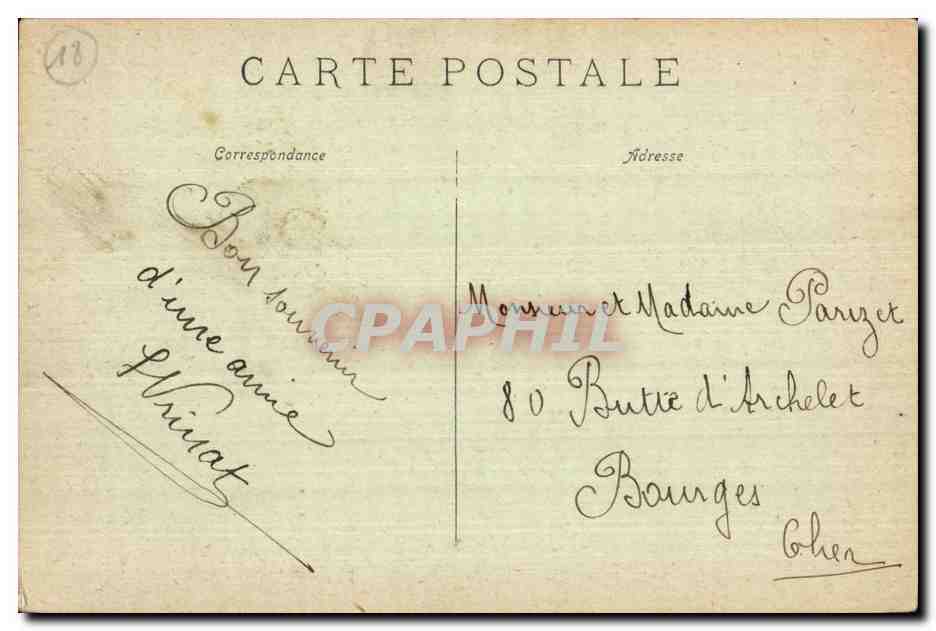 18
CARTE POSTALE
Correspondance
Adresse
Bon souvenir
d'une amie
Monsieur et Madame Parizet
80 Butte d'Archelet
Bourges
Cher
CPAPHIL